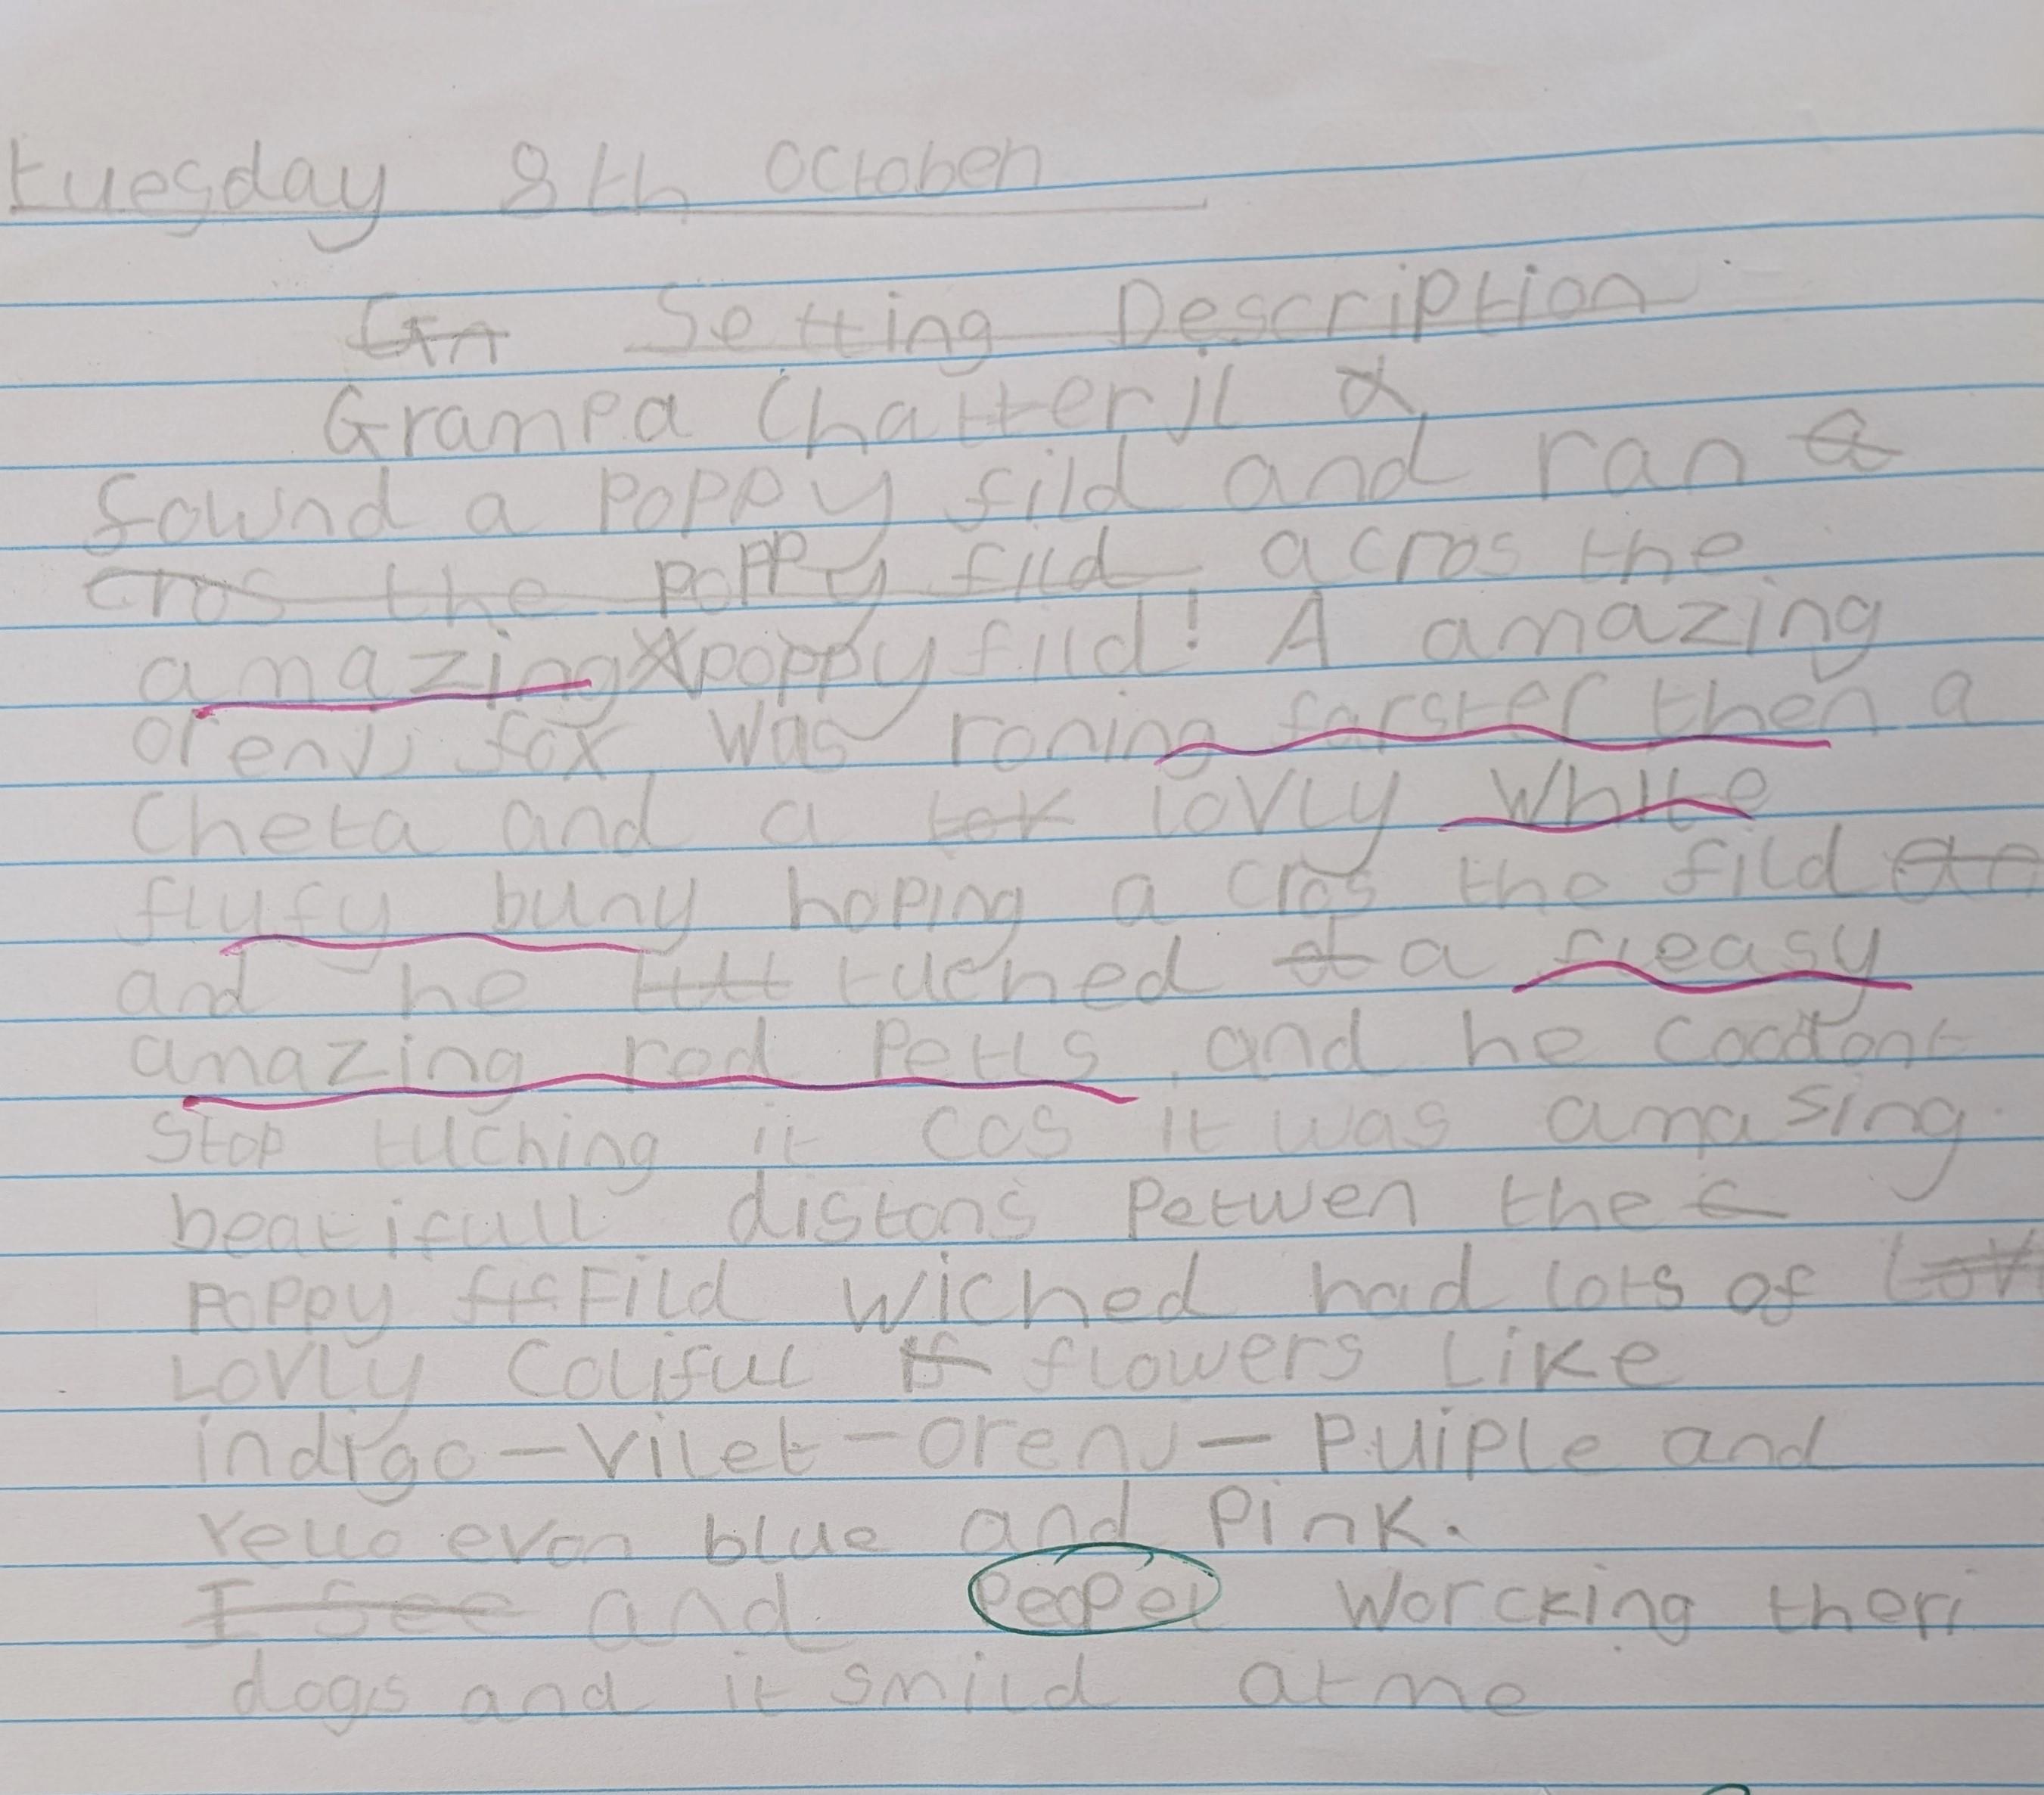 tuesday 8th october
Gra Setting Description
Grampa Chatterji
fownd a poppy fild and ran a
cros the poppy fild acros the
amazing poppy fild! A amazing
orenj fox was roning farster then a
Cheta and a lovly white
flufy buny hoping a cros the fild
and he tuched a fleasy
amazing red petls and he coodont
stop tuching it cos it was amasing
beatifull distons petwen the
poppy Fild wiched had lots of Lov
Lovly Colifull flowers like
indigo - vilet - orenj - puiple and
yello even blue and pink.
I See and peopel worcking theri
dogs and it smild at me